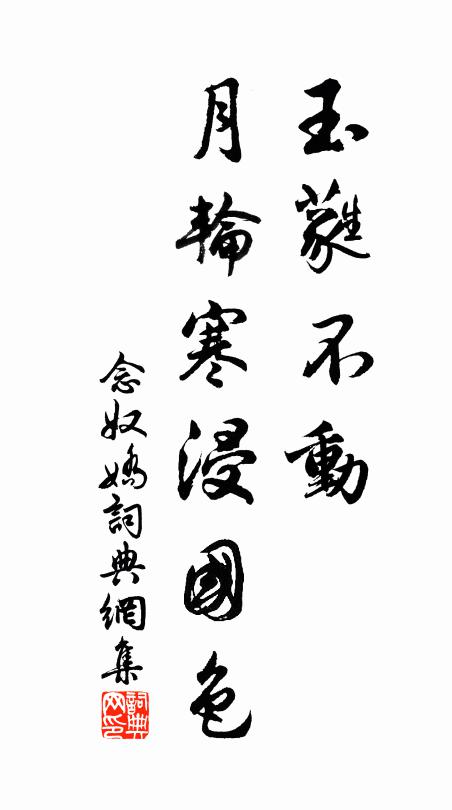 玉蕤不動
月輪寒浸國色
念奴嬌詞典網集
詞典网印